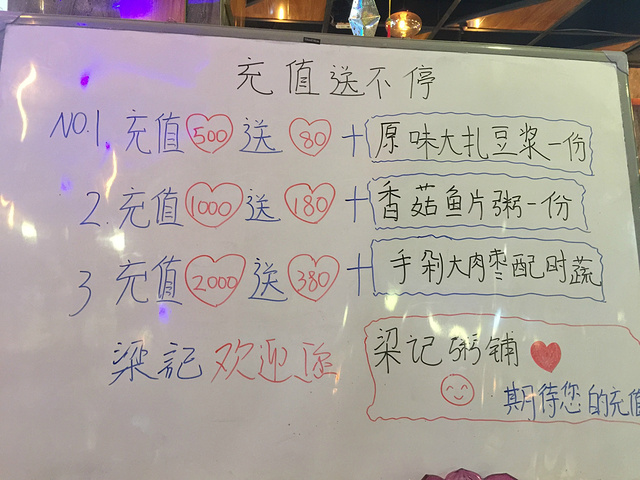 充值送不停
NO.1. 充值500送80+原味大扎豆浆一份
2. 充值1000送180+香菇鱼片粥一份
3 充值2000送380+手剁大肉枣配时蔬
梁記欢迎您
梁记粥铺
期待您的充值